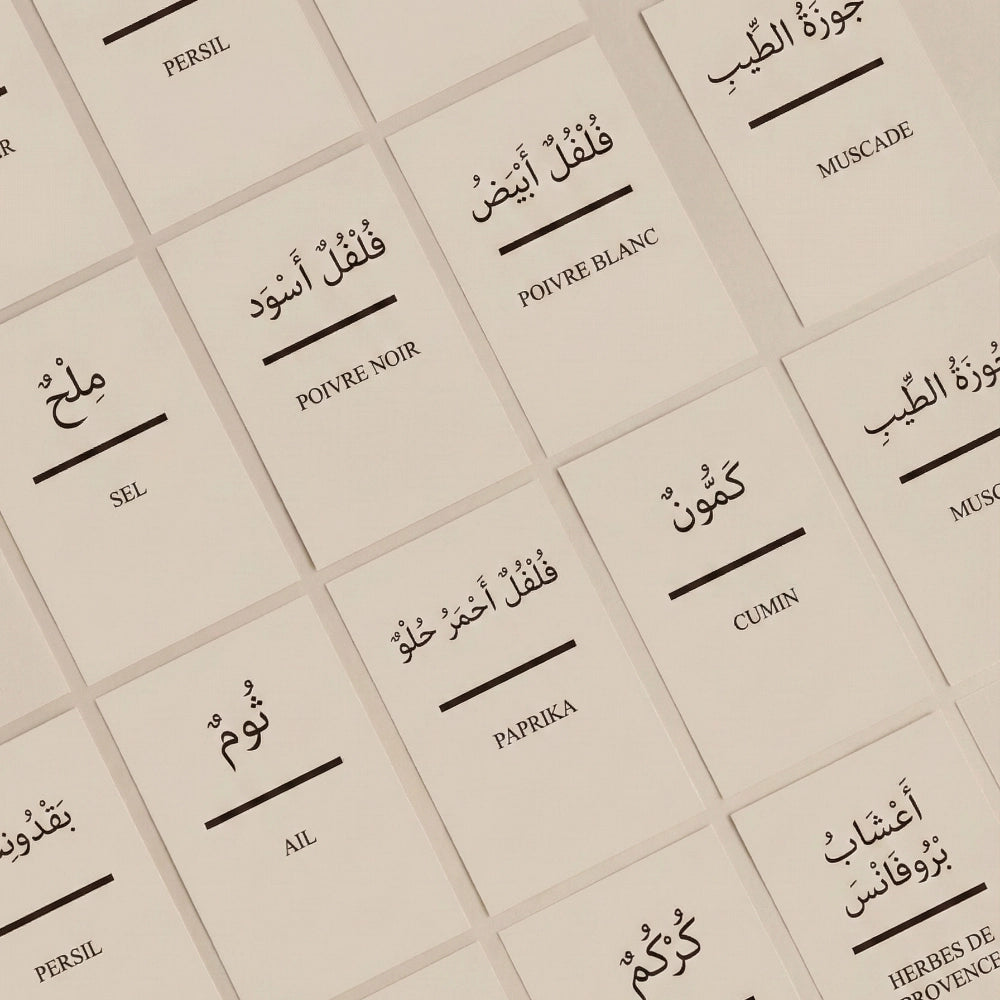 PERSIL
جَوزَةُ الطِّيبِ
MUSCADE
فُلْفُلٌ أَبْيَضُ
POIVRE BLANC
فُلْفُلٌ أَسْوَد
POIVRE NOIR
مِلْحٌ
SEL
جَوزَةُ الطِّيبِ
كَمُّونٌ
CUMIN
فُلْفُلٌ أَحْمَرُ حُلْوٌ
PAPRIKA
ثُومٌ
AIL
PERSIL
أَعْشَابُ
بْرُوفَانْسَ
HERBES DE
PROVENCE
كُرْكُمٌ